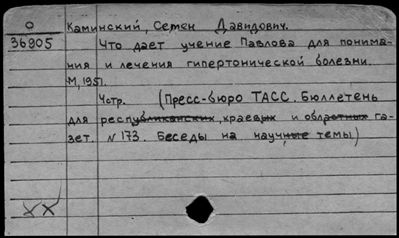 О Каминский, Семен Давидович.
36905 Что дает учение Павлова для понима-
ния и лечения гипертонической болезни.
М, 1951.
4стр. (Пресс-бюро ТАСС. Бюллетень
для республиканских, краевых и областных га-
зет. N 173. Беседы на научные темы)
XX